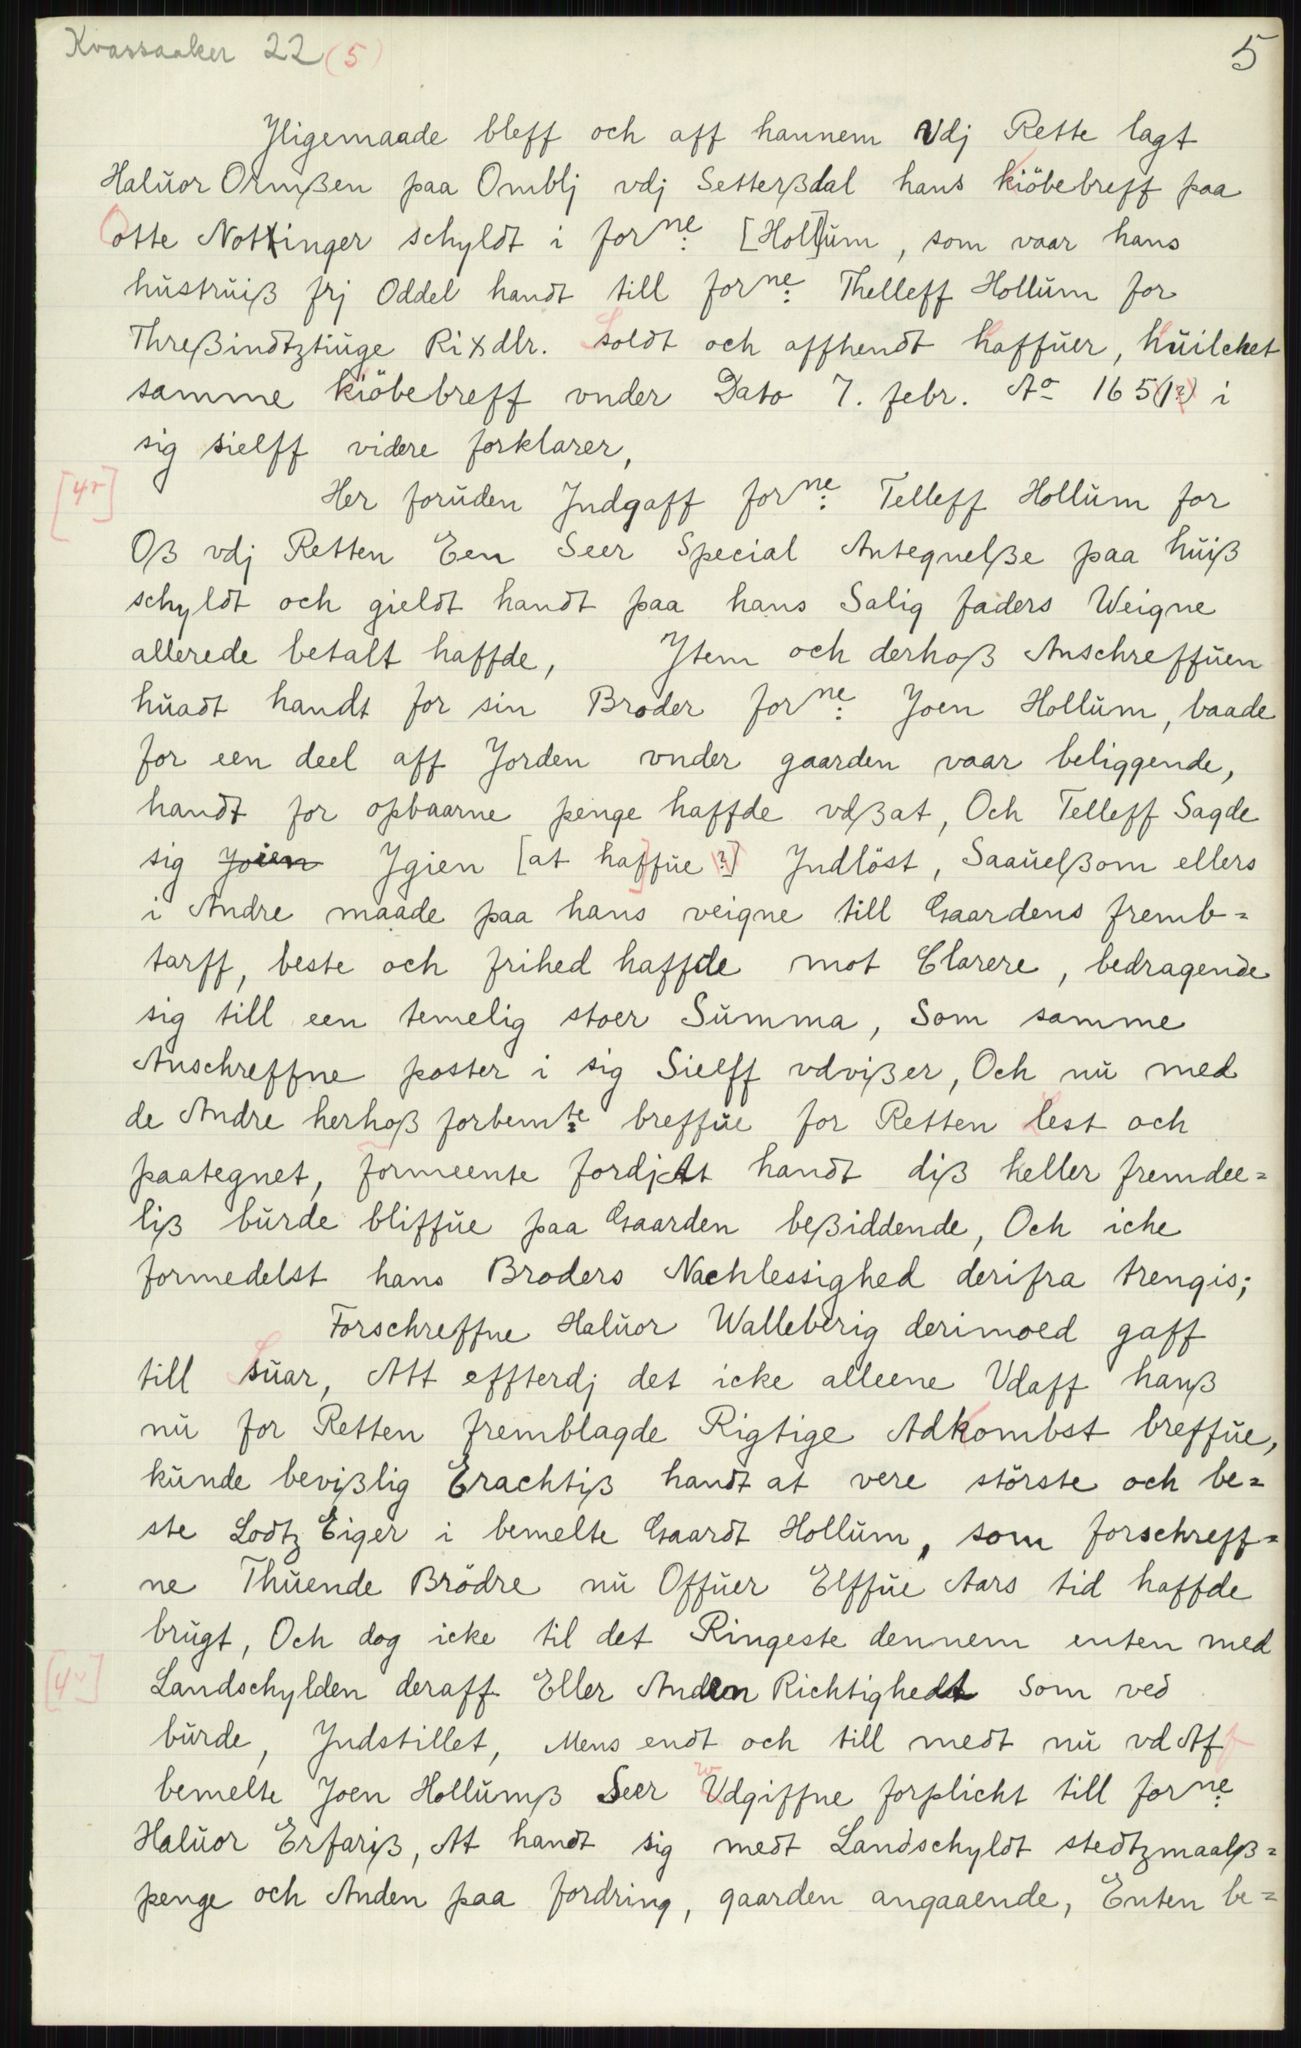 Kvarsaaker 22 (5)
5
Yligemaade bleff och aff hannem Vdj Rette lagt
Halŭor Ormßen paa Omblj vdj Setterßdal hans kiöbebreff paa
Otte Nottinger schyldt i forne: [Holl]ŭm, som vaar hans
hŭstrŭiß frj Oddel handt till forne: Thelleff Hollŭm for
Threßindtztiŭge Rixdlr. Soldt och affhendt haffŭer, hŭilcket
samme kiöbebreff vnder Dato 7. febr. Ao 165(1?) i
sig sielff videre forklarer,
[4r]
Her forŭden Jndgaff forne: Telleff Hollŭm for
Oß vdj Retten Een Seer Special Antegnelße paa hŭiß
schyldt och gieldt handt paa hans Salig faders Weigne
allerede betalt haffde, Ytem och derhoß Anschreffŭen
hŭadt handt for sin Broder forne: Joen Hollŭm, baade
for een deel aff Jorden vnder gaarden vaar beliggende,
handt for opbaarne penge haffde vdßat, Och Telleff Sagde
sig Ygien [at haffŭe?] Jndlöst, Saaŭelßom ellers
i Andre maade paa hans veigne till Gaardens fremb=
tarff, beste och frihed haffde mot Clarere, bedragende
sig till een temelig stoer Sŭmma, Som samme
Anschreffne poster i sig Sielff vdvißer, Och nŭ med
de Andre herhoß forbemte: breffŭe for Retten lest och
paategnet, formeente fordj At handt diß heller fremdee=
liß bŭrde bliffŭe paa Gaarden beßiddende, Och icke
formedelst hans Broders Nachlessighed derifra trengis;
Forschreffne Halŭor Walleberig derimoed gaff
till Sŭar, Att effterdj det icke alleene Vdaff hanß
nŭ for Retten fremblagde Rigtige Adkombst breffŭe,
kŭnde bevißlig Erachtiß handt at vere störste och be=
ste Lodtz Eiger i bemelte Gaardt Hollŭm, som forschreff=
ne Thŭende Brödre nŭ Offŭer Elffŭe Aars tid haffde
brŭgt, Och dog icke til det Ringeste dennem enten med
[4v]
Landschylden deraff Eller Anden Richtighedt Som ved
bŭrde, Jndstillet, Mens endt och till medt nŭ vd Aff
bemelte Joen Hollŭmß Seer Vdgiffne forplicht till forne:
Halŭor Erfariß, At handt sig medt Landschyldt stedtzmaalß=
penge och Anden paa fordring, gaarden angaaende, Enten be=